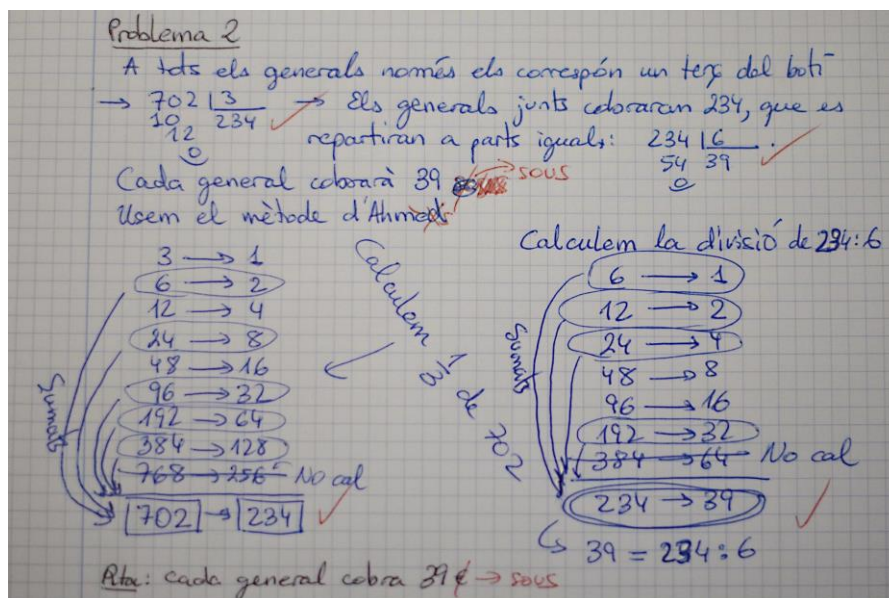 Problema 2
A tots els generals només els correspón un terç del botí
→ 702 | 3 → Els generals junts cobraran 234, que es
10 234
12 repartiran a parts iguals: 234 | 6 .
0 54 39
0
Cada general cobrarà 39 → sous
Usem el mètode d'Ahmed
Calculem 1/3 de 702
3 → 1
6 → 2
12 → 4
24 → 8
48 → 16
96 → 32
192 → 64
384 → 128
768 → 256 No cal
702 → 234
Sumats
Calculem la divisió de 234:6
6 → 1
12 → 2
24 → 4
48 → 8
96 → 16
192 → 32
384 → 64 No cal
234 → 39
Sumats
↳ 39 = 234 : 6
Rta: cada general cobra 39 € → sous